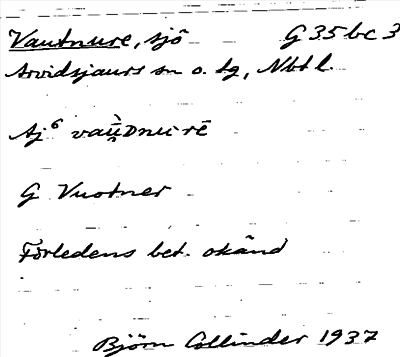 Vautnure, sjö G 35 bc 3
Arvidsjaurs sn o. tg, Nbtl.
Aj⁶
G Vuotner
Förledens bet. okänd
Björn Collinder 1937